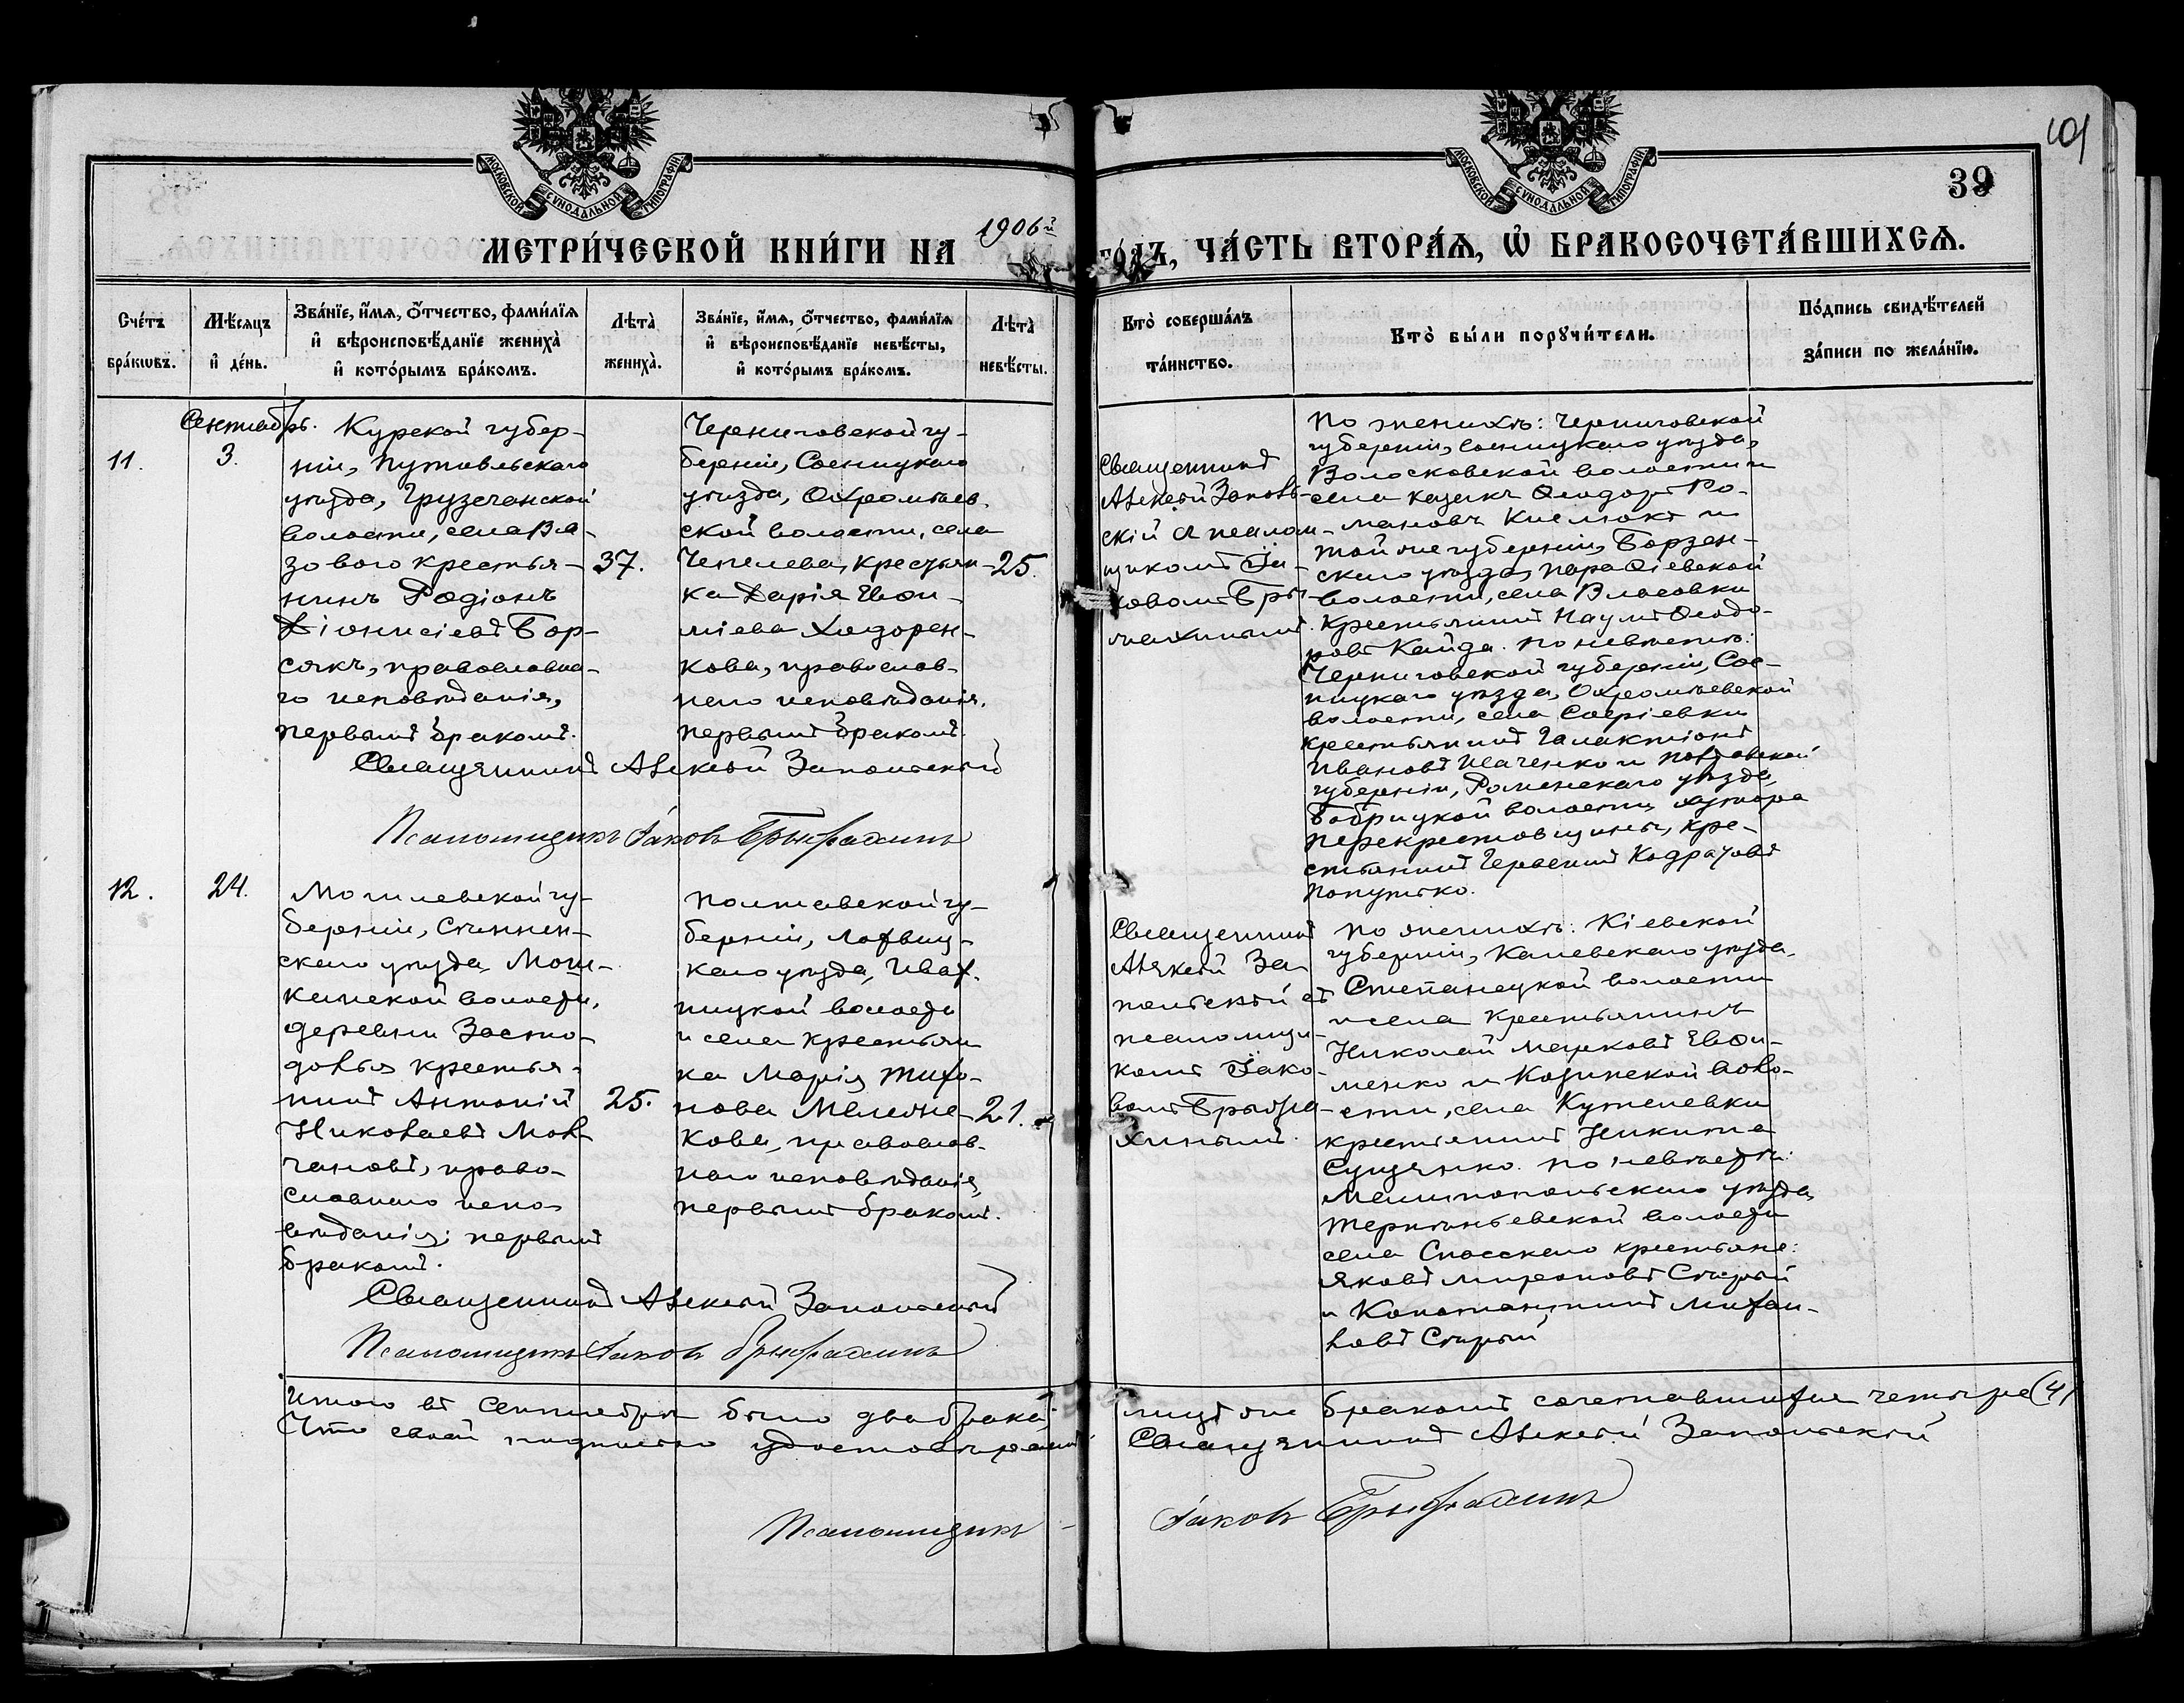 101
МОСКОВСКОЙ СѴНОДАЛЬНОЙ ТИПОГРАФІИ
МОСКОВСКОЙ СѴНОДАЛЬНОЙ ТИПОГРАФІИ
39
МЕТРИ́ЧЕСКОЙ КНИ́ГИ НА 1906й ГО́ДЪ, ЧА́СТЬ ВТОРА́Ѧ, Ѽ БРАКОСОЧЕТА́ВШИХСѦ.
Сче́тъ
бра́кѡвъ.
Мѣ́сѧцъ
и҆ де́нь.
Зва́нїе, и҆́мѧ, ѻ҆́тчество, фами́лїѧ
и҆ вѣроисповѣ́данїе жениха̀
и҆ кото́рымъ бра́комъ.
Лѣта̀
жениха̀.
Зва́нїе, и҆́мѧ, ѻ҆́тчество, фами́лїѧ
и҆ вѣроисповѣ́данїе невѣ́сты,
и҆ кото́рымъ бра́комъ.
Лѣта̀
невѣ́сты.
Кто̀ соверша́лъ
та́инство.
Кто̀ бы́ли порꙋчи́тели.
По́дпись свидѣ́телей
за́писи по жела́нїю.
11.
Сентябрь.
3.
Курской губер-
ніи, Путивльскаго
уѣзда, Грузчанской
волости, села Вя-
зового крестья-
нинъ Родіонъ
Діонисіевъ Бор-
сякъ, православна-
го исповѣданія,
первымъ бракомъ.
37.
Черниговской гу-
берніи, Сосницкаго
уѣзда, Охромѣев-
ской волости, села
Чепелева, крестьян-
ка Дарія Евѳи-
міева Ходорен-
кова, православ-
наго исповѣданія,
первымъ бракомъ.
25.
Священникъ Алексѣй Запольскій
Псаломщикъ Іаковъ
Священникъ
Алексѣй Заполь-
скій съ псалом-
щикомъ Іа-
ковомъ
По женихѣ: Черниговской
губерніи, Сосницкаго уѣзда,
Волосковской волости и
села казакъ Ѳеодоръ Ро-
мановъ и
той же губерніи, Борзен-
скаго уѣзда, Параѳіевской
волости, села Власовки
крестьянинъ Наумъ Ѳеодо-
ровъ Кайда. По невѣстѣ:
Черниговской губерніи, Сос-
ницкаго уѣзда, Охромѣевской
волости, села Софіевки
крестьянинъ Галактіонъ
Ивановъ Исаченко и Полтавской
губерніи, Роменскаго уѣзда,
Бобрицкой волости хутора
Перекрестовщины, кре-
стьянинъ
12.
24.
Могилевской гу-
берніи, Сѣннен-
скаго уѣзда,
волости,
деревни Засто-
долья крестья-
нинъ Антоній
Николаевъ Мол-
чановъ, право-
славнаго испо-
вѣданія; первымъ
бракомъ.
25.
Полтавской гу-
берніи, Лохвиц-
каго уѣзда, Ивах-
ницкой волости
и села крестьян-
ка Марія Тихо-
нова
кова, православ-
наго исповѣданія,
первымъ бракомъ.
21.
Священникъ Алексѣй Запольскій
Псаломщикъ Іаковъ
Священникъ
Алексѣй За-
польскій съ
псаломщи-
комъ Іако-
вомъ
По женихѣ: Кіевской
губерніи, Каневскаго уѣзда,
Степанецкой волости
и села крестьянинъ
Николай Марковъ Евѳи-
менко и Козинской воло-
сти, села Кутелевки
крестьянинъ Никита
Сущенко. По невѣстѣ:
Мелитопольскаго уѣзда,
Терпѣньевской волости
села Спасскаго крестьяне:
Яковъ Мироновъ Старый
и Константинъ Михаи-
ловъ Старый
Итого въ Сентябрѣ было два брака,
лицъ же бракомъ сочетавшихся четыре (4)
Что своей подписью удостовѣряемъ
Священникъ Алексѣй Запольскій
Псаломщикъ Іаковъ